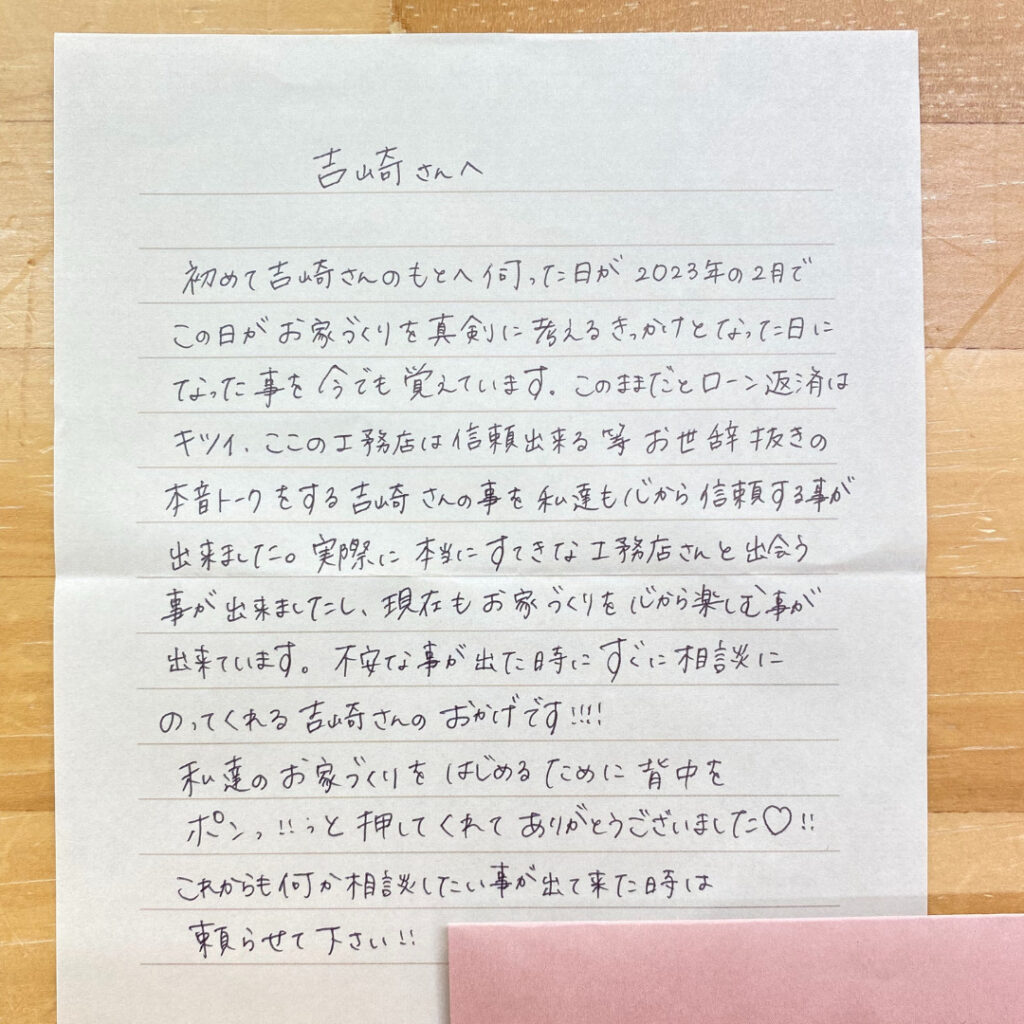 吉崎さんへ
初めて吉崎さんのもとへ伺った日が2023年の2月で
この日がお家づくりを真剣に考えるきっかけとなった日に
なった事を今でも覚えています。このままだとローン返済は
キツイ、ここの工務店は信頼出来る等お世辞抜きの
本音トークをする吉崎さんの事を私達も心から信頼する事が
出来ました。実際に本当にすてきな工務店さんと出会う
事が出来ましたし、現在もお家づくりを心から楽しむ事が
出来ています。不安な事が出た時にすぐに相談に
のってくれる吉崎さんのおかげです!!!!
私達のお家づくりをはじめるために背中を
ポンっ!!っと押してくれてありがとうございました♡!!
これからも何か相談したい事が出て来た時は
頼らせて下さい!!